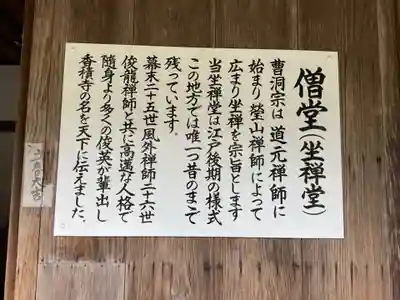 僧堂(坐禅堂)
曹洞宗は道元禅師に
始まり瑩山禅師によって
広まり坐禅を宗旨とします
当坐禅堂は江戸後期の様式
この地方では唯一つ昔のまゝで
残っています。
幕末二十五世風外禅師二十六世
俊龍禅師と共に高邁な人格で
随身より多くの俊英が輩出し
香積寺の名を天下に伝えました。